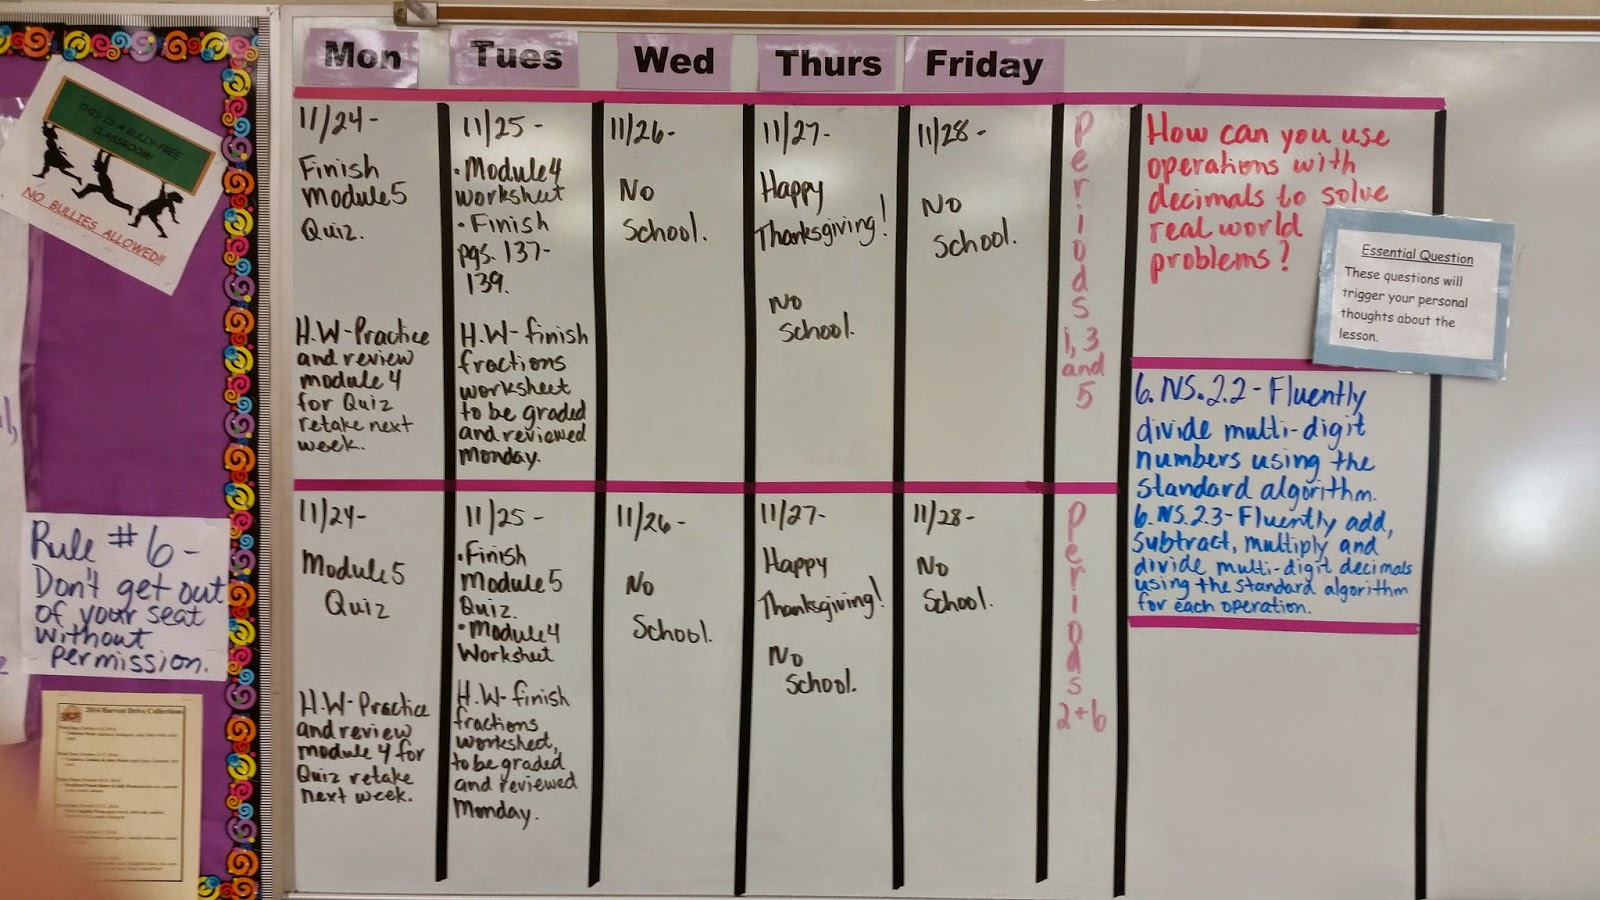 THIS IS A BULLY-FREE
CLASSROOM!
NO BULLIES ALLOWED!!
Rule #6-
Don't get out
of your seat
without
permission.
2014 Harvest Drive Collections
Mon
Tues
Wed
Thurs
Friday
11/24-
Finish
Module 5
Quiz.
H.W-Practice
and review
module 4
for Quiz
retake next
week.
11/25-
• Module 4
worksheet
• Finish
pgs. 137-
139.
H.W- finish
fractions
worksheet
to be graded
and reviewed
Monday.
11/26-
No
School.
11/27-
Happy
Thanksgiving!
No
School.
11/28-
No
School.
Periods
1, 3
and
5
11/24-
Module 5
Quiz
H.W- Practice
and review
module 4 for
Quiz retake
next week.
11/25-
• Finish
Module 5
Quiz.
• Module 4
Worksheet
H.W- finish
fractions
worksheet,
to be graded
and reviewed
Monday.
11/26-
No
School.
11/27-
Happy
Thanksgiving!
No
School.
11/28-
No
School.
Periods
2+6
How can you use
operations with
decimals to solve
real world
problems?
Essential Question
These questions will
trigger your personal
thoughts about the
lesson.
6.NS.2.2- Fluently
divide multi-digit
numbers using the
standard algorithm.
6.NS.2.3- Fluently add,
subtract, multiply and
divide multi-digit decimals
using the standard algorithm
for each operation.